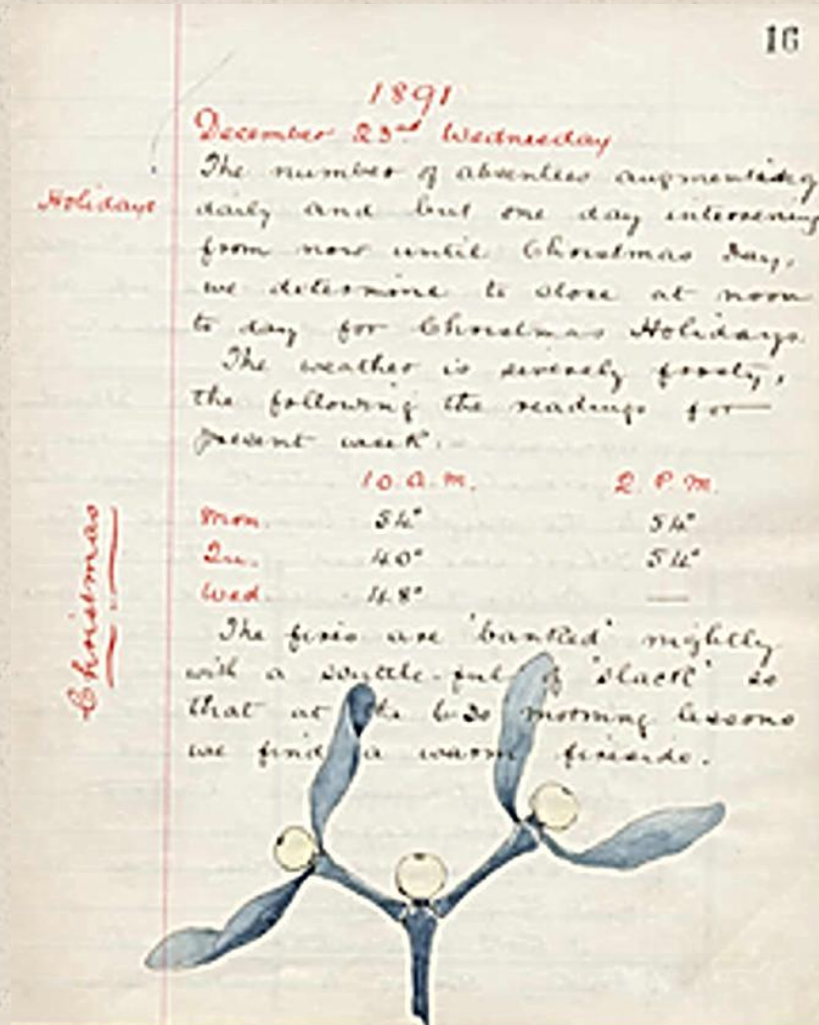 16
1891
December 23rd Wednesday
The number of absentees augmenting
Holidays
daily and but one day intervening
from now until Christmas Day,
we determine to close at noon
to day for Christmas Holidays.
The weather is severely frosty,
the following the readings for
present week.
10 A.M. 2 P.M.
Mon. 54° 54°
Tu. 40° 54°
Wed. 48° —
Christmas
The fires are 'banked' nightly
with a scuttle-full of 'slack' so
that at the 6.30 morning lessons
we find a warm fireside.